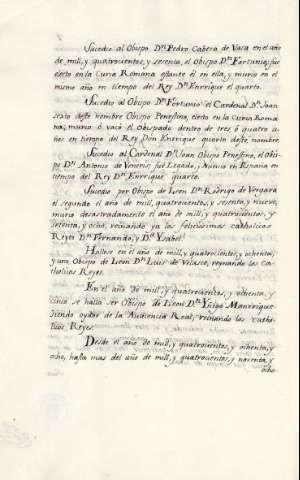 Sucedio al Obispo Dn. Pedro Cabeza de Vaca en el año
de mill, y quatrocientos, y sesenta, el Obispo Dn. Fortunio; fue
electo en la Curia Romana estante él en ella, y murio en el
mismo año en tiempo del Rey Dn. Enrrique el quarto.
Sucedio al Obispo Dn. Fortunio el Cardenal Dn. Joan
sexto deste nombre Obispo Penestino, electo en la Curia Roma-
na, murio ó vacó el Obispado dentro de tres ó quatro a
ños en tiempo del Rey Don Enrrique quarto deste nombre.
Sucedio al Cardenal Dn. Joan Obispo Penestino, el Obis-
po Dn. Antonio de Veneris, fue Legado, y Nuncio en España en
tiempo del Rey Dn. Enrrique quarto.
Sucedio por Obispo de Leon Dn. Rodrigo de Vergara
el segundo el año de mill, quatrocientos, y sesenta, y nueve,
murio desastradamente el año de mill, y quatrocientos, y
setenta, y ocho, reinando ya los felicissimos catholicos
Reyes Dn. Fernando, y Da. Ysabel.
Hallose en el año de mill, y quatrocientos, y ochenta,
y uno Obispo de Leon Dn. Luis de Velasco, reynando los Ca-
tholicos Reyes.
En el año de mill, y quatrocientos, y ochenta, y
cinco se halla ser Obispo de Leon Dn. Yñigo Manrrique
siendo oydor de la Audiencia Real, reinando los catho-
licos Reyes.
Desde el año de mill, y quatrocientos, y ochenta, y
ocho, hasta mas del año de mill, y quatrocientos, y noventa, y
ocho